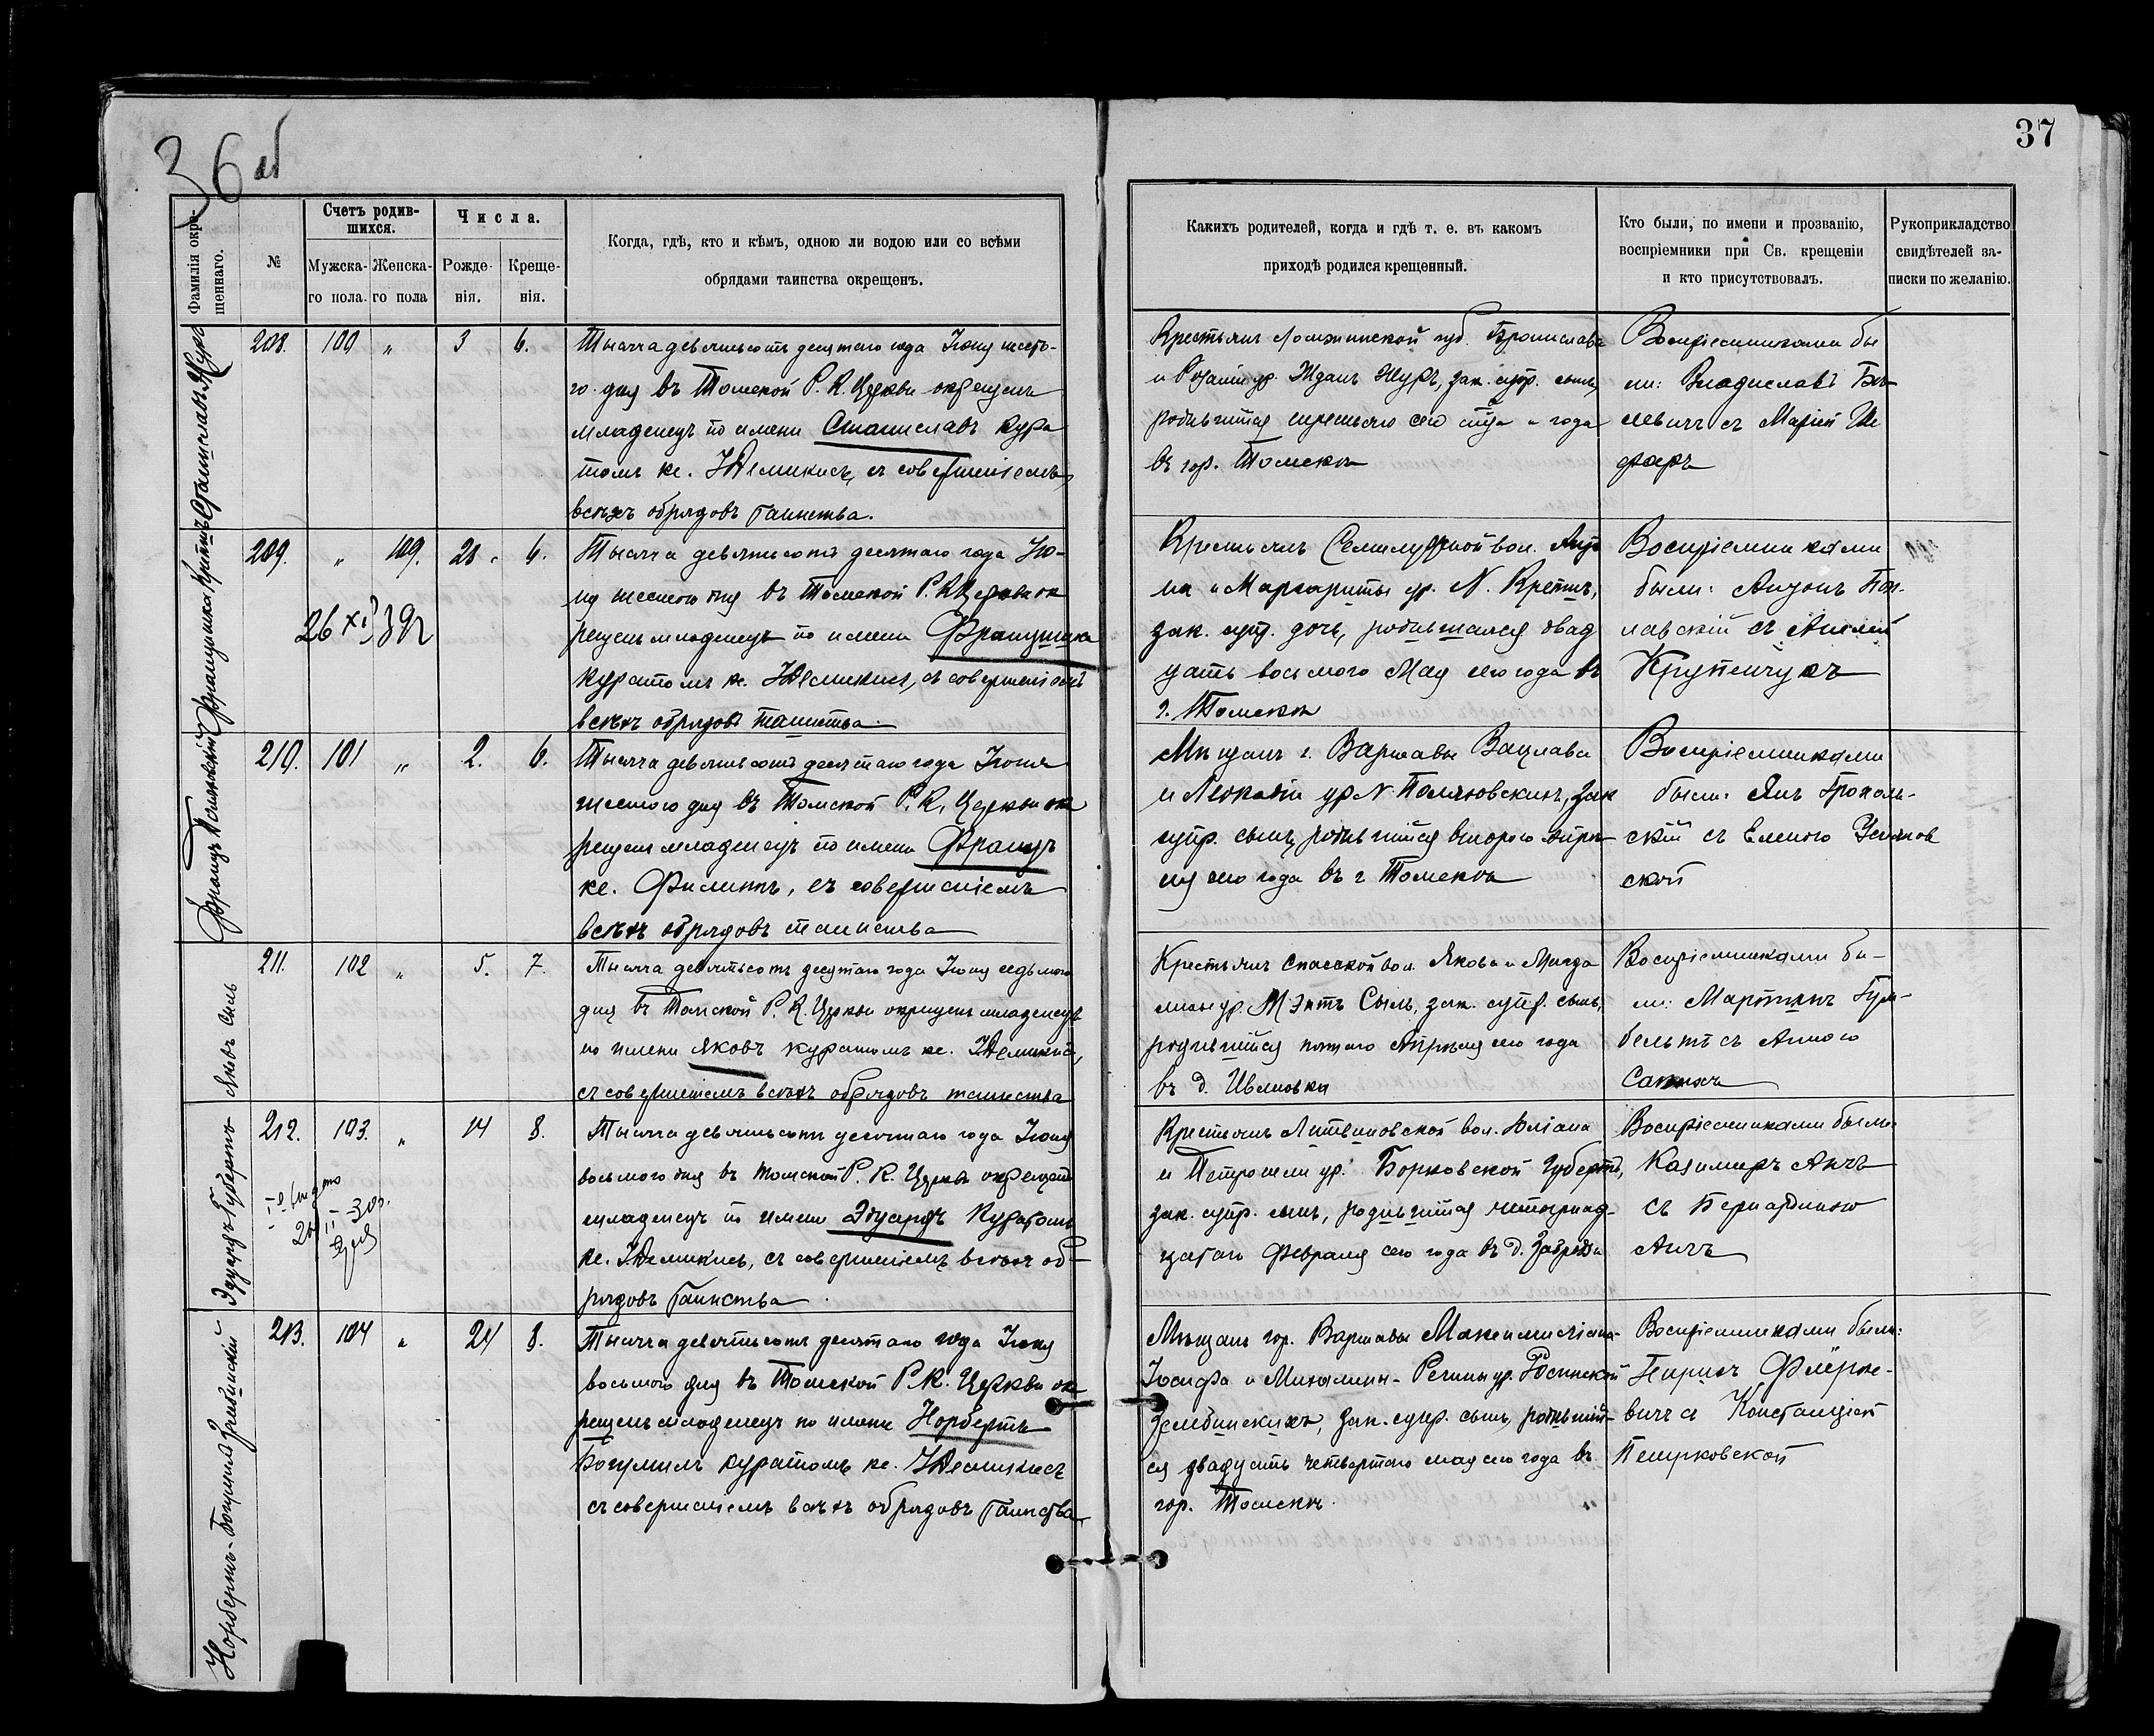 36 об
37
Фамилія окре-
щеннаго.
№
Счетъ родив-
шихся.
Мужска-
го пола.
Женска-
го пола
Числа.
Рожде-
нія.
Креще-
нія.
Когда, гдѣ, кто и кѣмъ, одною ли водою или со всѣми
обрядами таинства окрещенъ.
Какихъ родителей, когда и гдѣ т. е. въ какомъ
приходѣ родился крещенный.
Кто были, по имени и прозванію,
воспріемники при Св. крещеніи
и кто присутствовалъ.
Рукоприкладство
свидѣтелей за-
писки по желанію.
Станиславъ Журъ
208. 100 „ 3 6.
Тысяча девятьсотъ десятаго года Іюня шесто-
го дня въ Томской Р. К. Церкви окрещенъ
младенецъ по имени Станиславъ Кура
томъ кс. Демикисъ, съ совершеніемъ
всѣхъ обрядовъ таинства.
Крестьянъ Ломжинской губ. Бронислава
и Розаліи ур. Жданъ Журъ, зак. супр. сынъ,
родившійся третьяго сего м-ца и года
въ гор. Томскѣ
Воспріемниками бы
ли: Владиславъ
съ Маріей Ше
феръ
Францишка Крепшъ
209. „ 109. 28. 6.
26 XI 39г
Тысяча девятьсотъ десятаго года Iю-
ня шестого дня въ Томской Р. К. Церкви ок
рещенъ младенецъ по имени Францишка
Куратомъ кс. Демикисъ, съ совершеніемъ
всѣхъ обрядовъ таинства.
Крестьянъ Семилужной вол.
и Маргариты ур. N. Крепшъ,
зак. супр. дочь, родившаяся двад
цать восьмого Мая сего года въ
г. Томскѣ
Воспріемниками
были: Антонъ
съ
Крупенчукъ
Францъ Поляновскій
210. 101 „ 2. 6.
Тысяча девятьсотъ десятаго года Іюня
шестого дня въ Томской Р. К. Церкви ок
рещенъ младенецъ по имени Францъ
кс. Филиппъ, съ совершеніемъ
всѣхъ обрядовъ таинства
Мѣщанъ г. Варшавы Вацлава
и Леокадіи ур N Поляновскихъ, зак
супр. сынъ, родившійся второго Апрѣ
ля сего года въ г Томскѣ
Воспріемниками
были: Янъ Грохоль-
скій съ Еленою
ской
Яковъ Сыль
211. 102 „ 5. 7.
Тысяча девятьсотъ десятаго года Іюня седьмого
дня въ Томской Р. К. Церкви окрещенъ младенецъ
по имени Яковъ куратомъ кс. Демикисъ,
съ совершеніемъ всѣхъ обрядовъ таинства
Крестьянъ Спасской вол. Якова и Магда
лины ур. Сыль, зак. супр. сынъ,
родившійся пятаго Апрѣля сего года
въ д. Ивановкѣ
Воспріемниками бы-
ли: Мартинъ Гум-
бельтъ съ Анною
Эдуардъ Губертъ
212. 103. „ 14 8.
Тысяча девятьсотъ десятаго года Іюня
восьмого дня въ Томской Р. К. Церкви окрещенъ
младенецъ по имени Эдуардъ Куратомъ
кс. Демикисъ, съ совершеніемъ всѣхъ об-
рядовъ таинства.
Крестьянъ Литвиновской вол. Юліана
и Петронели ур. Борковской Губертъ,
зак. супр. сынъ, родившійся четырнад-
цатаго Февраля сего года въ д.
Воспріемниками были:
Казимиръ Анчъ
съ Бернардиною
Анчъ
Норбертъ-Богумилъ Зембинскій
213. 104 „ 24 8.
Тысяча девятьсотъ десятаго года Іюня
восьмого дня въ Томской Р. К. Церкви ок
рещенъ младенецъ по имени Норбертъ
Богумилъ куратомъ кс. Демикисъ
съ совершеніемъ всѣхъ обрядовъ таинства
Мѣщанъ гор. Варшавы Максимиліана-
Іосифа и Михалины-Регины ур. Росинской
Зембинскихъ, зак. супр. сынъ, родившій-
ся двадцать четвертаго мая сего года въ
гор. Томскѣ.
Воспріемниками были:
вичъ съ Констанціей
Петрковской